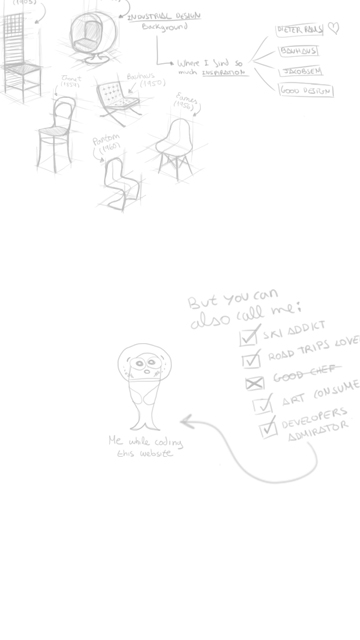 INDUSTRIAL DESIGN
Background
Where I find so
much INSPIRATION
DIETER RAMS
BAUHAUS
GOOD DESIGN
(1959)
(1957)
Eames
(1956)
Panton
(1960)
But you can
also call me:
SKI ADDICT
ROAD TRIPS LOVE
GOOD CHEF
ART CONSUME
DEVELOPERS
ADMIRATOR
Me while coding
this website